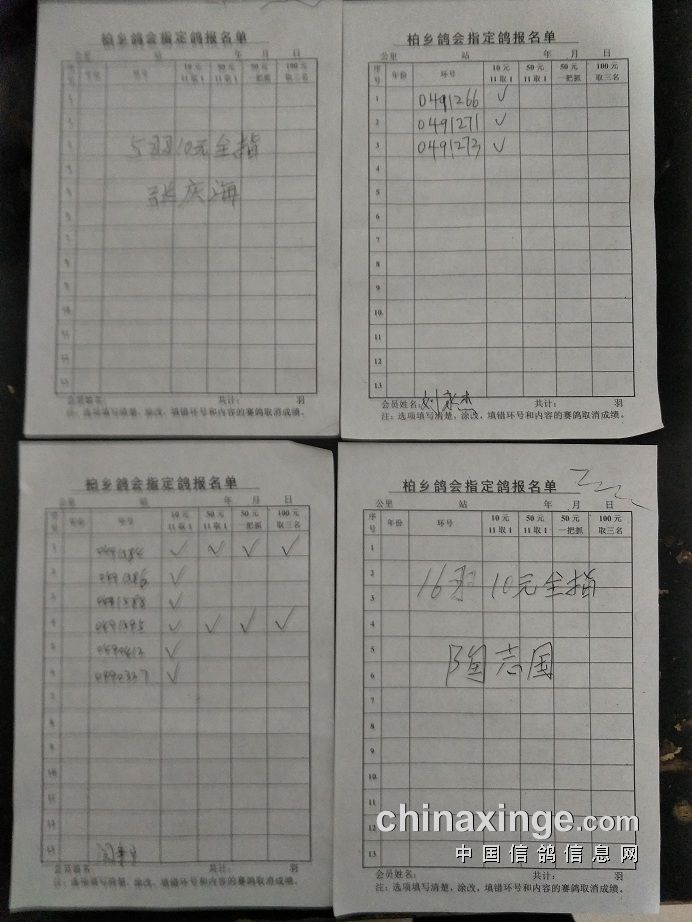 柏乡鸽会指定鸽报名单
公里 站 年 月 日
序号 年份 环号 10元 11取1 50元 11取1 50元 一把抓 100元 取三名
1
2
3 5羽10元全指
4
5 张庆海
6
7
8
9
10
11
12
13
会员姓名: 共计: 羽
注: 选项填写清楚, 涂改, 填错环号和内容的赛鸽取消成绩。
柏乡鸽会指定鸽报名单
公里 站 年 月 日
序号 年份 环号 10元 11取1 50元 11取1 50元 一把抓 100元 取三名
1 0491266 ✓
2 0491271 ✓
3 0491273 ✓
4
5
6
7
8
9
10
11
12
13
会员姓名: 共计: 羽
注: 选项填写清楚, 涂改, 填错环号和内容的赛鸽取消成绩。
柏乡鸽会指定鸽报名单
公里 站 年 月 日
序号 年份 环号 10元 11取1 50元 11取1 50元 一把抓 100元 取三名
1 ✓ ✓ ✓ ✓
2 ✓
3 ✓
4 ✓ ✓ ✓ ✓
5 ✓
6 ✓
7
8
9
10
11
12
13
会员姓名: 共计: 羽
注: 选项填写清楚, 涂改, 填错环号和内容的赛鸽取消成绩。
柏乡鸽会指定鸽报名单
公里 站 年 月 日
序号 年份 环号 10元 11取1 50元 11取1 50元 一把抓 100元 取三名
1
2 16羽 10元全指
3
4
5 陶志国
6
7
8
9
10
11
12
13
会员姓名: 共计: 羽
注: 选项填写清楚, 涂改, 填错环号和内容的赛鸽取消成绩。
chinaxinge.com
中国信鸽信息网